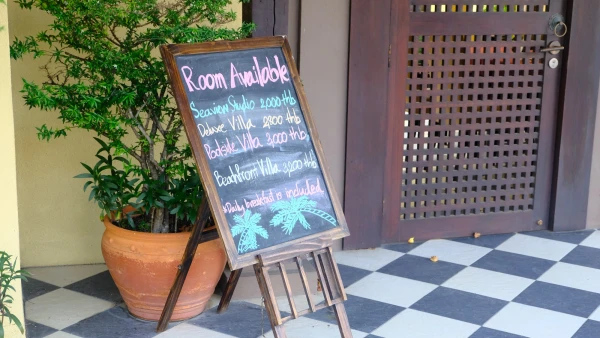 Room Available
Seaview Studio 2,000 thb
Deluxe Villa 2,800 thb
Poolside Villa 3,000 thb
Beachfront Villa 3,200 thb
*Daily breakfast is included